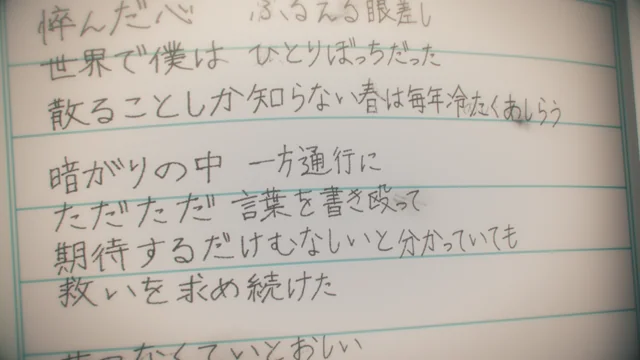 悴んだ心 ふるえる眼差し
世界で僕は ひとりぼっちだった
散ることしか知らない春は毎年冷たくあしらう
暗がりの中 一方通行に
ただただ 言葉を書き殴って
期待するだけむなしいと分かっていても
救いを求め続けた
せつなくていとおしい